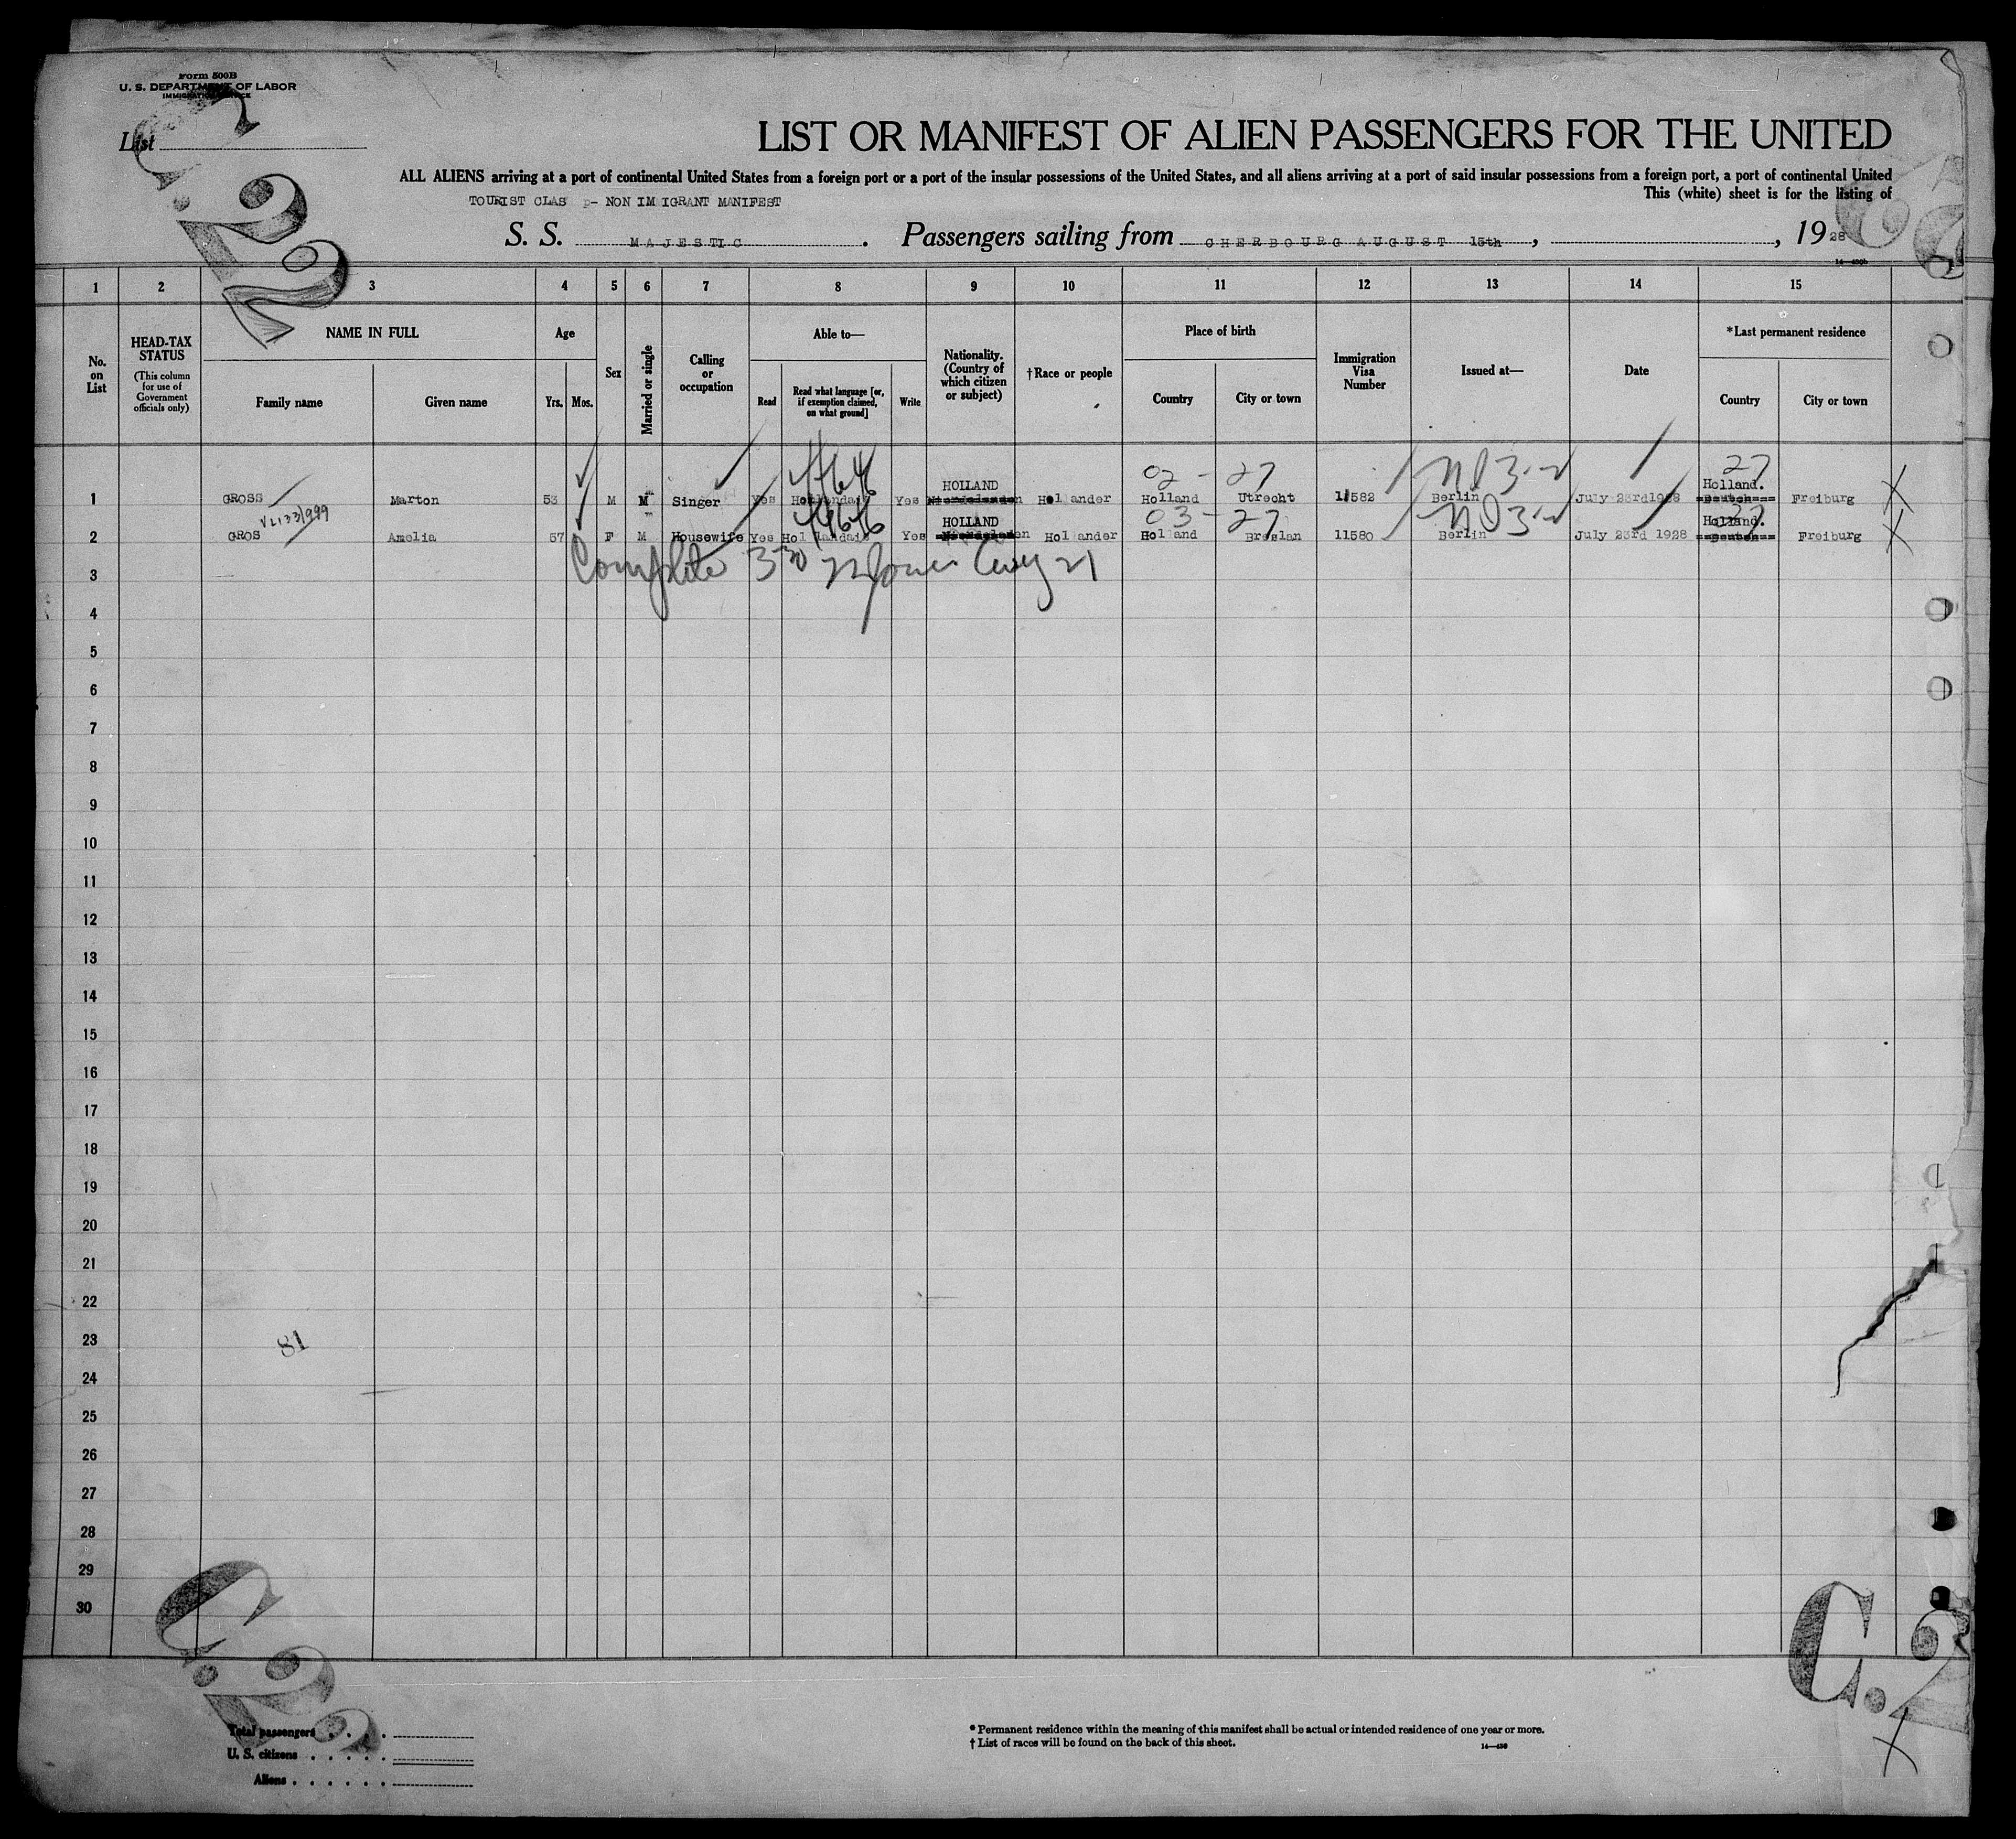 Form 500B
U. S. DEPARTMENT OF LABOR
IMMIGRATION SERVICE
List
LIST OR MANIFEST OF ALIEN PASSENGERS FOR THE UNITED
ALL ALIENS arriving at a port of continental United States from a foreign port or a port of the insular possessions of the United States, and all aliens arriving at a port of said insular possessions from a foreign port, a port of continental United
This (white) sheet is for the listing of
TOURIST CLAS - NON IM IGRANT MANIFEST
S. S. MAJESTIC. Passengers sailing from CHERBOURG AUGUST 15th, , 1928
C.22
1 2 3 4 5 6 7 8 9 10 11 12 13 14 15
No. on List
HEAD-TAX STATUS (This column for use of Government officials only)
NAME IN FULL
Family name
Given name
Age
Yrs.
Mos.
Sex
Married or single
Calling or occupation
Able to—
Read
Read what language [or, if exemption claimed, on what ground]
Write
Nationality. (Country of which citizen or subject)
†Race or people
Place of birth
Country
City or town
Immigration Visa Number
Issued at—
Date
*Last permanent residence
Country
City or town
02 - 27 27
HOLLAND Holland.
1 GROSS Marton 53 M M Singer Yes Yes Hollander Holland Utrecht 11582 Berlin July 23rd 1928 Freiburg X
03 - 27 27
HOLLAND Holland.
2 GROS Amelia 57 F M Housewife Yes Yes Hol ander Hol and Breslan 11580 Berlin July 23rd 1928 Freiburg X
Complete 3 30 Aug 21
3
4
5
6
7
8
9
10
11
12
13
14
15
16
17
18
19
20
21
22
23
81
24
25
26
27
28
29
30
C.22
C.2
Total passengers
U. S. citizens
Aliens
* Permanent residence within the meaning of this manifest shall be actual or intended residence of one year or more.
† List of races will be found on the back of this sheet.
X